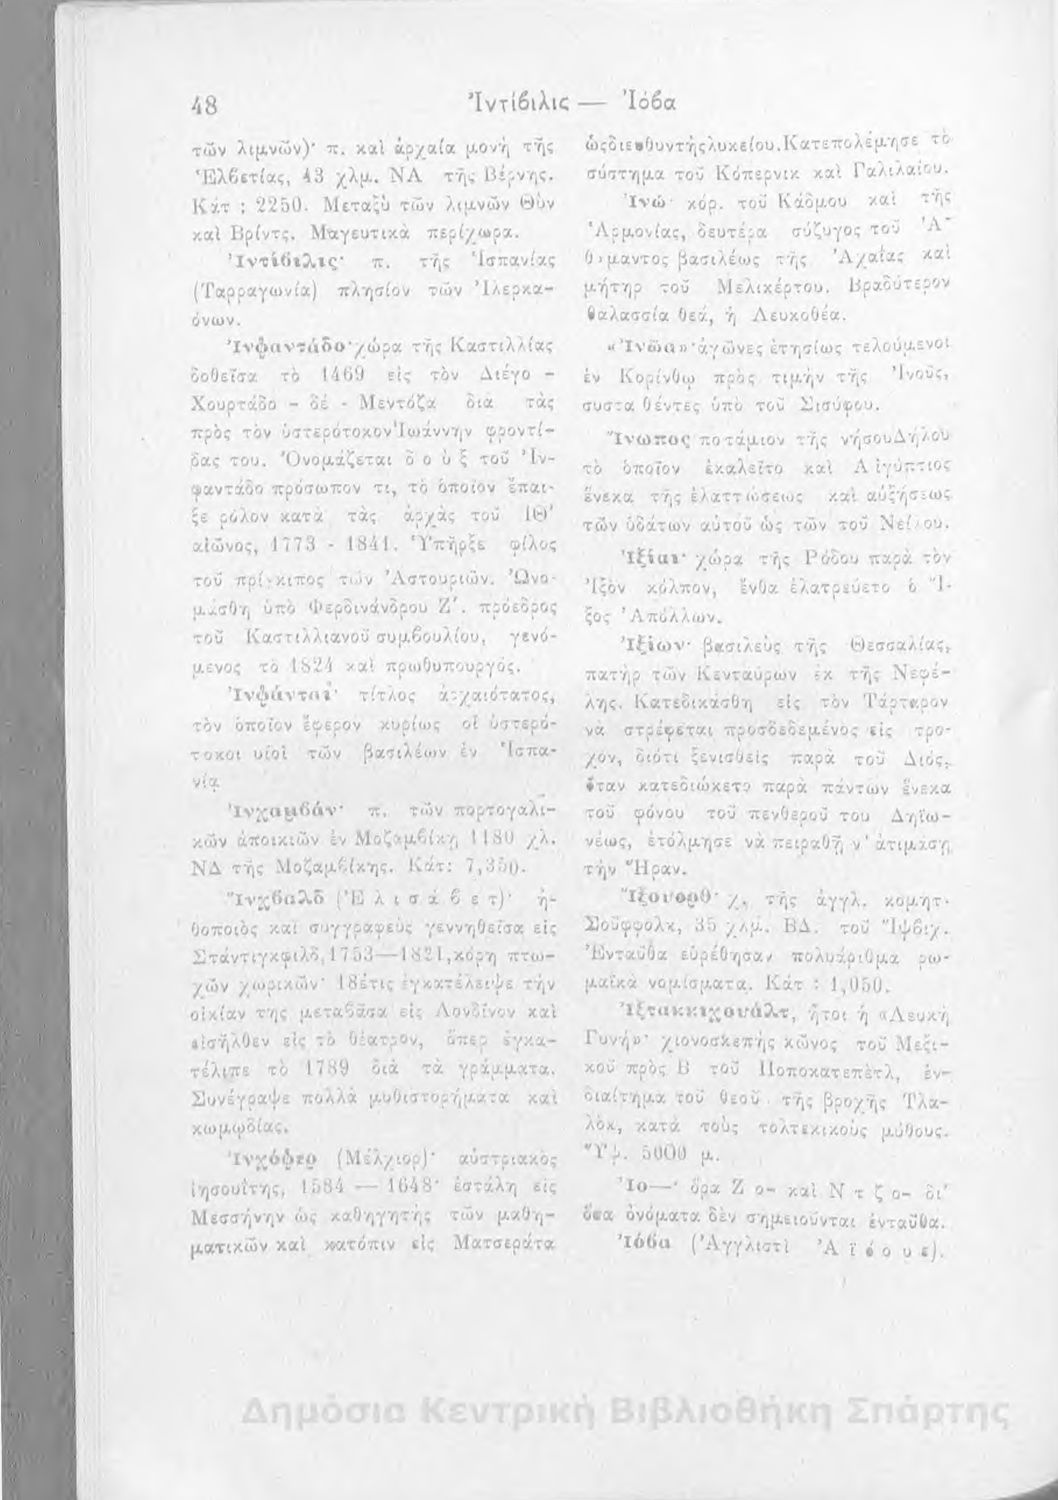 48
Ἰντίβιλις — Ἰόβα
τῶν λιμνῶν)· π. καὶ ἀρχαία μονὴ τῆς
Ἑλβετίας, 43 χλμ. ΝΑ τῆς Βέρνης.
Κάτ : 2250. Μεταξὺ τῶν λιμνῶν Θὺν
καὶ Βρίντς. Μαγευτικὰ περίχωρα.
Ἰντίβιλις· π. τῆς Ἱσπανίας
(Ταρραγωνία) πλησίον τῶν Ἰλερκα-
όνων.
Ἰνφαντάδο· χώρα τῆς Καστιλλίας
δοθεῖσα τὸ 1469 εἰς τὸν Διέγο -
Χουρτάδο - δὲ - Μεντόζα διὰ τὰς
πρὸς τὸν ὑστερότοκον Ἰωάννην φροντί-
δας του. Ὀνομάζεται δ ο ὺ ξ τοῦ Ἰν-
φαντάδο πρόσωπον τι, τὸ ὁποῖον ἔπαι-
ξε ρόλον κατὰ τὰς ἀρχὰς τοῦ ΙΘ'
αἰῶνος, 1773 - 1841. Ὑπῆρξε φίλος
τοῦ πρίγκιπος τῶν Ἀστουριῶν. Ὠνο-
μάσθη ὑπὸ Φερδινάνδρου Ζ'. πρόεδρος
τοῦ Καστιλλιανοῦ συμβουλίου, γενό-
μενος τὸ 1824 καὶ πρωθυπουργός.
Ἰνφάνται· τίτλος ἀρχαιότατος,
τὸν ὁποῖον ἔφερον κυρίως οἱ ὑστερό-
τοκοι υἱοὶ τῶν βασιλέων ἐν Ἱσπα-
νίᾳ
Ἰνχαμβάν· π. τῶν πορτογαλι-
κῶν ἀποικιῶν ἐν Μοζαμβίκῃ 1180 χλ.
ΝΔ τῆς Μοζαμβίκης. Κάτ: 7,350.
Ἴνχβαλδ (Ἐ λ ι σ ά β ε τ)· ἠ-
θοποιὸς καὶ συγγραφεὺς γεννηθεῖσα εἰς
Στάντιγκφιλδ, 1753—1821, κόρη πτω-
χῶν χωρικῶν· 18έτις ἐγκατέλειψε τὴν
οἰκίαν της μεταβᾶσα εἰς Λονδῖνον καὶ
εἰσῆλθεν εἰς τὸ θέατρον, ὅπερ ἐγκα-
τέλιπε τὸ 1789 διὰ τὰ γράμματα.
Συνέγραψε πολλὰ μυθιστορήματα καὶ
κωμῳδίας.
Ἰνχόφερ (Μέλχιορ)· αὐστριακὸς
ἰησουΐτης, 1584 — 1648· ἐστάλη εἰς
Μεσσήνην ὡς καθηγητὴς τῶν μαθη-
ματικῶν καὶ κατόπιν εἰς Ματσεράτα
ὡς διευθυντὴς λυκείου. Κατεπολέμησε τὸ
σύστημα τοῦ Κόπερνικ καὶ Γαλιλαίου.
Ἰνώ· κόρ. τοῦ Κάδμου καὶ τῆς
Ἁρμονίας, δευτέρα σύζυγος τοῦ Ἀ-
θάμαντος βασιλέως τῆς Ἀχαΐας καὶ
μήτηρ τοῦ Μελικέρτου. Βραδύτερον
θαλασσία θεά, ἡ Λευκοθέα.
«Ἰνῶα»· ἀγῶνες ἐτησίως τελούμενοι
ἐν Κορίνθῳ πρὸς τιμὴν τῆς Ἰνοῦς,
συσταθέντες ὑπὸ τοῦ Σισύφου.
Ἴνωπος ποτάμιον τῆς νήσου Δήλου
τὸ ὁποῖον ἐκαλεῖτο καὶ Αἰγύπτιος
ἕνεκα τῆς ἐλαττώσεως καὶ αὐξήσεως
τῶν ὑδάτων αὐτοῦ ὡς τῶν τοῦ Νείλου.
Ἰξίαι· χώρα τῆς Ρόδου παρὰ τὸν
Ἰξὸν κόλπον, ἔνθα ἐλατρεύετο ὁ Ἴ-
ξος Ἀπόλλων.
Ἰξίων· βασιλεὺς τῆς Θεσσαλίας,
πατὴρ τῶν Κενταύρων ἐκ τῆς Νεφέ-
λης. Κατεδικάσθη εἰς τὸν Τάρταρον
νὰ στρέφεται προσδεδεμένος εἰς τρο-
χόν, διότι ξενισθεὶς παρὰ τοῦ Διός,
ὅταν κατεδιώκετο παρὰ πάντων ἕνεκα
τοῦ φόνου τοῦ πενθεροῦ του Δηϊω-
νέως, ἐτόλμησε νὰ πειραθῇ ν' ἀτιμάσῃ
τὴν Ἥραν.
Ἴξουορθ· χ. τῆς ἀγγλ. κομητ.
Σούφφολκ, 35 χλμ. ΒΔ. τοῦ Ἴψβιχ.
Ἐνταῦθα εὑρέθησαν πολυάριθμα ρω-
μαϊκὰ νομίσματα. Κάτ : 1,050.
Ἰξτακκιχουάλτ, ἤτοι ἡ «Λευκὴ
Γυνή»· χιονοσκεπὴς κῶνος τοῦ Μεξι-
κοῦ πρὸς Β τοῦ Ποποκατεπέτλ, ἐν-
διαίτημα τοῦ θεοῦ τῆς βροχῆς Τλα-
λόκ, κατὰ τοὺς τολτεκικοὺς μύθους.
Ὕψ. 5000 μ.
Ἰο—· ὅρα Ζ ο- καὶ Ν τ ζ ο- δι'
ὅσα ὀνόματα δὲν σημειοῦνται ἐνταῦθα.
Ἰόβα (Ἀγγλιστὶ Ἀ ϊ ό ο υ ε).
Δημόσια Κεντρική Βιβλιοθήκη Σπάρτης